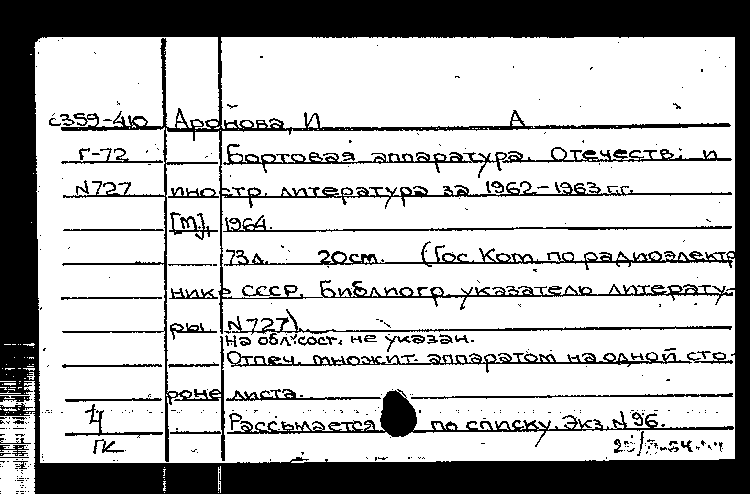 с359-410 Аронова, И А
Г-72 Бортовая аппаратура. Отечеств. и
N727 иностр. литература за 1962-1963 гг.
[М], 1964.
73 л. 20 см. (Гос. Ком. по радиоэлектро
нике СССР. Библиогр. указатель литерату-
ры N727).
На обл. сост. не указан.
Отпеч. множит. аппаратом на одной сто-
роне листа.
Ч Рассылается по списку. Экз. N 96.
ГК